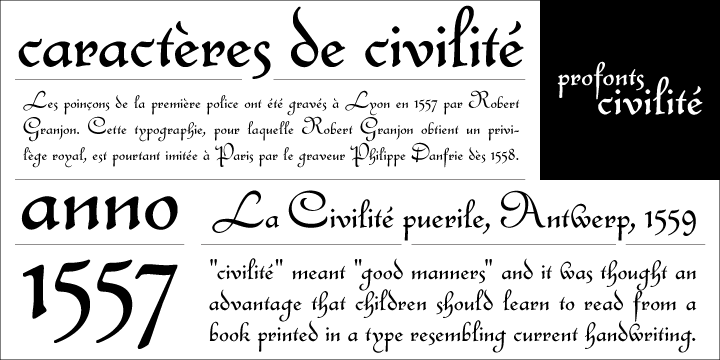 caractères de civilité
profonts
civilité
Les poinçons de la première police ont été gravés à Lyon en 1557 par Robert
Granjon. Cette typographie, pour laquelle Robert Granjon obtient un privi-
lège royal, est pourtant imitée à Paris par le graveur Philippe Danfrie dès 1558.
anno
1557
La Civilité puerile, Antwerp, 1559
"civilité" meant "good manners" and it was thought an
advantage that children should learn to read from a
book printed in a type resembling current handwriting.